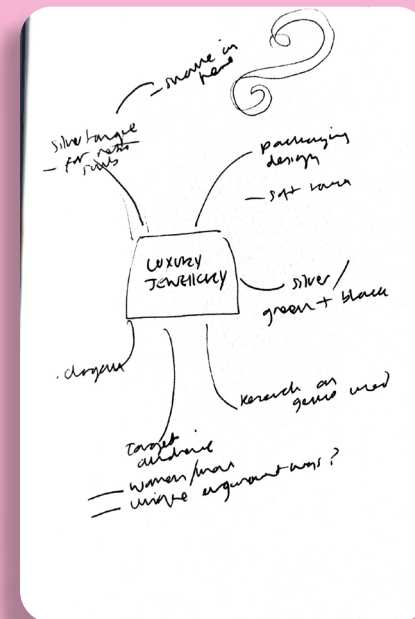 - snake in
silver tongue
- for
packaging
design
- soft touch
LUXURY
JEWELLERY
silver /
green + black
. elegant
research on
gems used
target
audience
- women/man
- unique ?